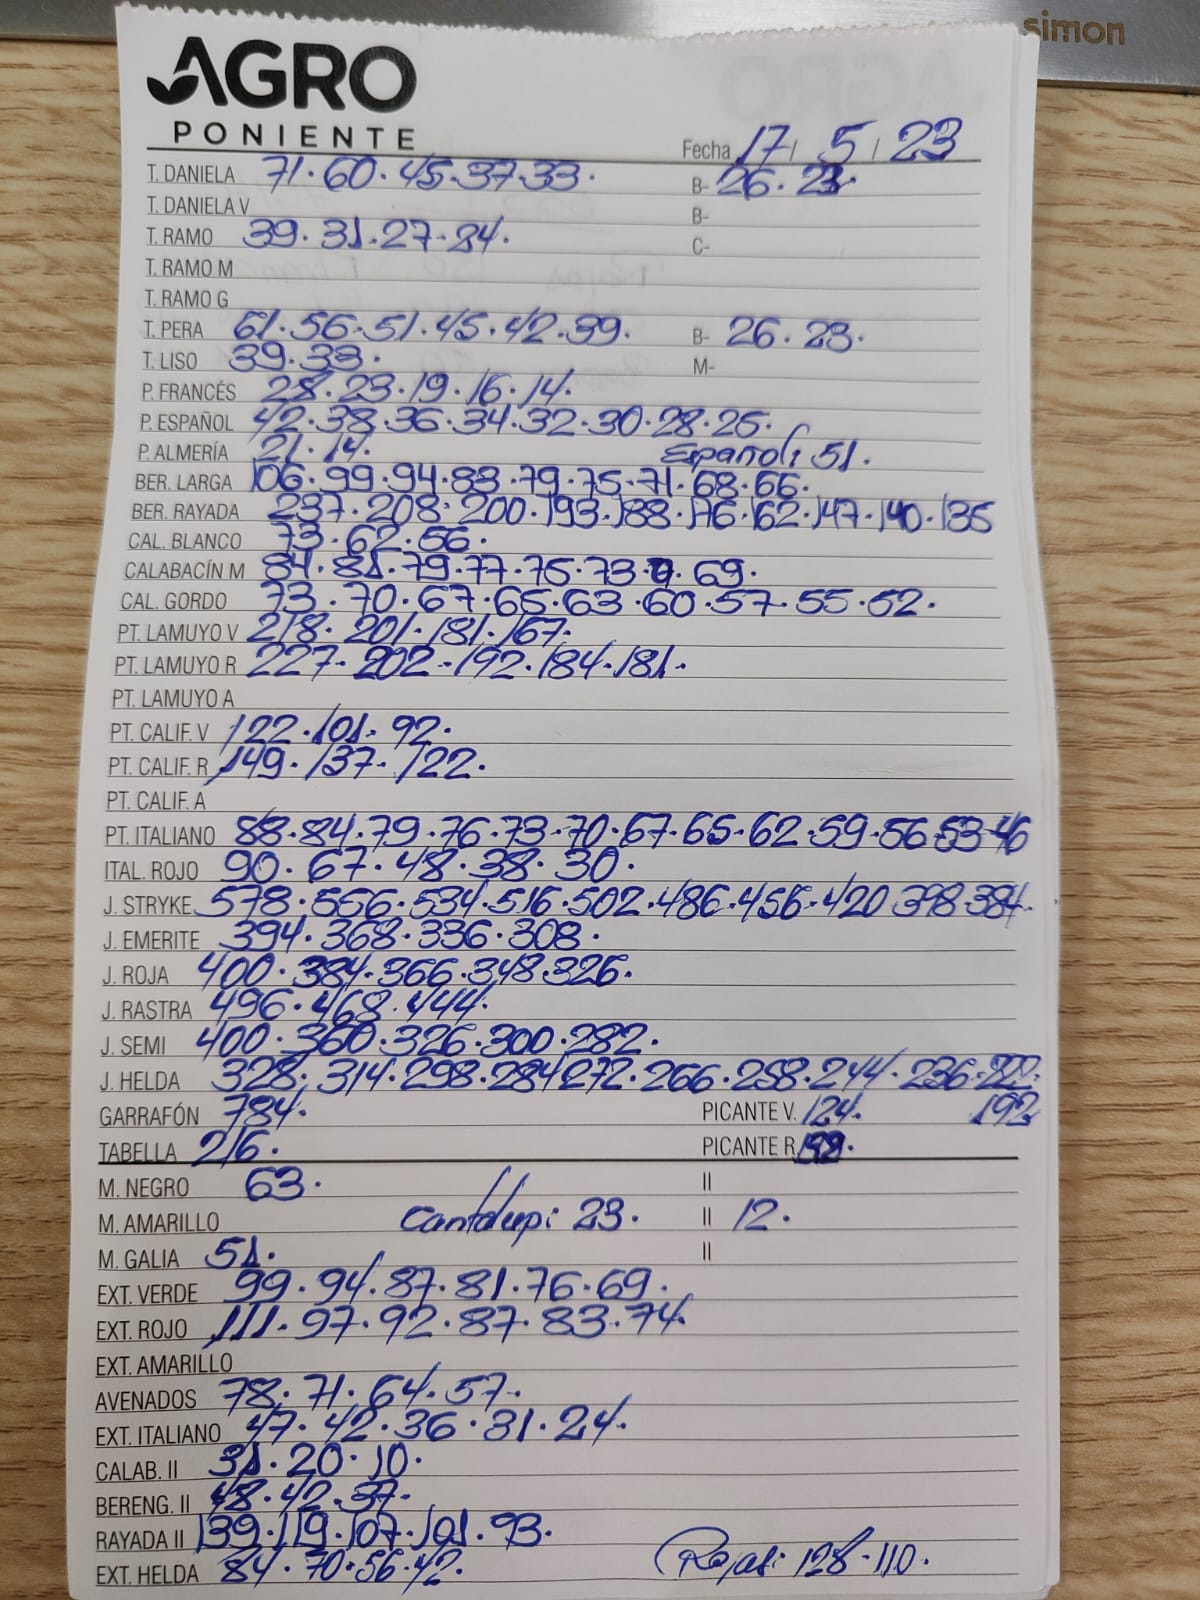 simon
AGRO
PONIENTE
Fecha 17 / 5 / 23
T. DANIELA 71. 60. 45. 37. 33. B- 26. 23.
T. DANIELA V B-
T. RAMO 39. 31. 27. 24. C-
T. RAMO M
T. RAMO G
T. PERA 61. 56. 51. 45. 42. 39. B- 26. 23.
T. LISO 39. 33. M-
P. FRANCÉS 28. 23. 19. 16. 14.
P. ESPAÑOL 42. 38. 36. 34. 32. 30. 28. 25.
P. ALMERÍA 21. 14. Español: 51.
BER. LARGA 106. 99. 94. 83. 79. 75. 71. 68. 66.
BER. RAYADA 237. 208. 200. 193. 188. 176. 162. 147. 140. 135
CAL. BLANCO 73. 62. 56.
CALABACÍN M 84. 81. 79. 77. 75. 73. 69.
CAL. GORDO 73. 70. 67. 65. 63. 60. 57. 55. 52.
PT. LAMUYO V 218. 201. 181. 167.
PT. LAMUYO R 227. 202. 192. 184. 181.
PT. LAMUYO A
PT. CALIF. V 122. 101. 92.
PT. CALIF. R 149. 137. 122.
PT. CALIF. A
PT. ITALIANO 88. 84. 79. 76. 73. 70. 67. 65. 62. 59. 56. 53. 46
ITAL. ROJO 90. 67. 48. 38. 30.
J. STRYKE 578. 556. 534. 516. 502. 486. 456. 420. 398. 384.
J. EMERITE 394. 368. 336. 308.
J. ROJA 400. 384. 366. 348. 326.
J. RASTRA 496. 468. 444.
J. SEMI 400. 360. 326. 300. 282.
J. HELDA 328. 314. 298. 284. 272. 266. 258. 244. 236. 222.
GARRAFÓN 784. PICANTE V. 124. 192
TABELLA 216. PICANTE R
M. NEGRO 63. II
M. AMARILLO Cantalupi 23. II 12.
M. GALIA 51. II
EXT. VERDE 99. 94. 87. 81. 76. 69.
EXT. ROJO 111. 97. 92. 87. 83. 74.
EXT. AMARILLO
AVENADOS 78. 71. 64. 57.
EXT. ITALIANO 47. 42. 36. 31. 24.
CALAB. II 31. 20. 10.
BERENG. II 48. 42. 37.
RAYADA II 139. 119. 107. 101. 93.
EXT. HELDA 84. 70. 56. 42. Rojas: 128. 110.